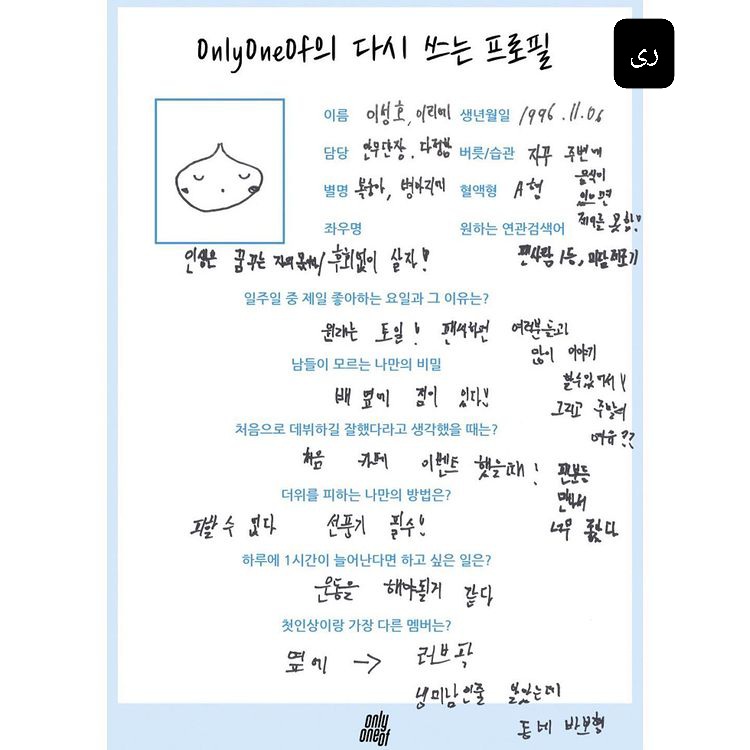 OnlyOneOf의 다시 쓰는 프로필
ری
이름 이성호, 이리에 생년월일 1996.11.06
담당 안무단장. 다정함 버릇/습관 자꾸 주변에
음식이
있으면
제어를 못함!
별명 복숭아, 병아리에 혈액형 A형
좌우명 원하는 연관검색어
인생은 꿈꾸는 자의 몫이다/후회없이 살자!
팬사랑 1등, 미담제조기
일주일 중 제일 좋아하는 요일과 그 이유는?
원래는 토일! 팬싸하면 여러분들과
많이 이야기
할수있어서!!
그리고 주말의
여유??
남들이 모르는 나만의 비밀
배 옆에 점이 있다!!
처음으로 데뷔하길 잘했다라고 생각했을 때는?
처음 카페 이벤트 했을때! 팬분들
만나서
너무 좋았다
더위를 피하는 나만의 방법은?
피할 수 없다 선풍기 필수!
하루에 1시간이 늘어난다면 하고 싶은 일은?
운동을 해야될거 같다
첫인상이랑 가장 다른 멤버는?
옆에 → 러브팍
냉미남인줄 알았는데
동네 바보형
only
oneof